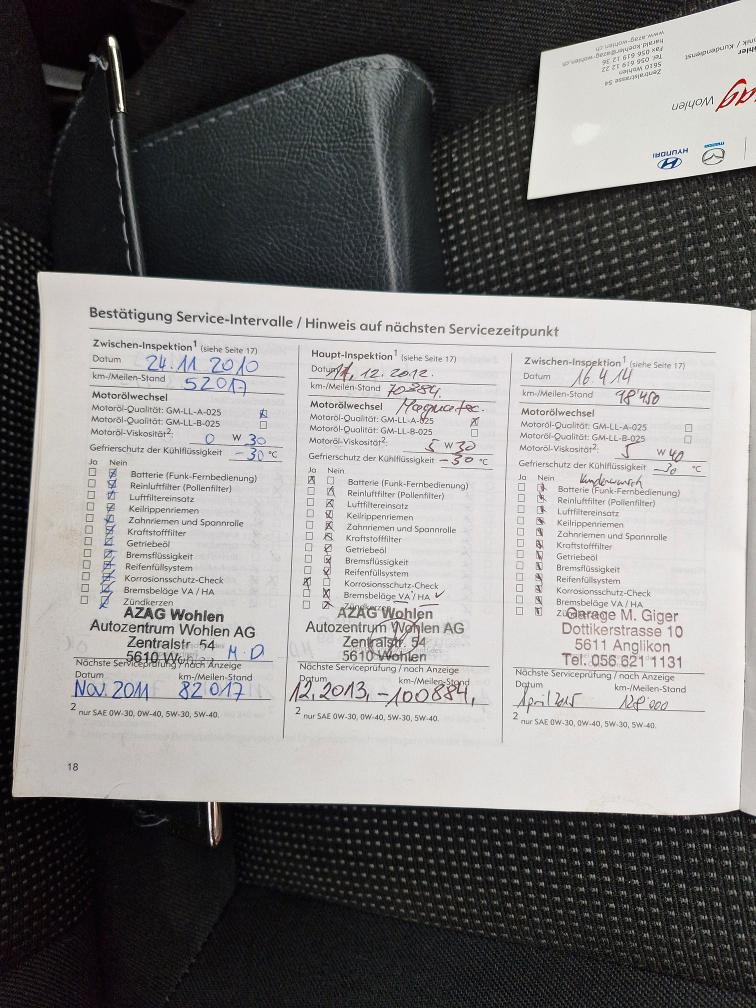 Zentralstrasse 54
5610 Wohlen
Tel. 056 619 12 22
Fax 056 619 12 36
harald.koehler@azag-wohlen.ch
www.azag-wohlen.ch
Wohlen
HYUNDAI
mazda
Bestätigung Service-Intervalle / Hinweis auf nächsten Servicezeitpunkt
Zwischen-Inspektion¹ (siehe Seite 17)
Datum 24.11 2010
km-/Meilen-Stand 52017
Motorölwechsel
Motoröl-Qualität: GM-LL-A-025
Motoröl-Qualität: GM-LL-B-025
Motoröl-Viskosität²: 0 W 30
Gefrierschutz der Kühlflüssigkeit -30 °C
Ja Nein
Batterie (Funk-Fernbedienung)
Reinluftfilter (Pollenfilter)
Luftfiltereinsatz
Keilrippenriemen
Zahnriemen und Spannrolle
Kraftstofffilter
Getriebeöl
Bremsflüssigkeit
Reifenfüllsystem
Korrosionsschutz-Check
Bremsbeläge VA / HA
Zündkerzen
AZAG Wohlen
Autozentrum Wohlen AG
Zentralstr. 54
5610 Wohlen M.D
Nächste Serviceprüfung / nach Anzeige
Datum km-/Meilen-Stand
Nov. 2011 82017
2 nur SAE 0W-30, 0W-40, 5W-30, 5W-40.
Haupt-Inspektion¹ (siehe Seite 17)
Datum 11, 12. 2012.
km-/Meilen-Stand 70884.
Motorölwechsel Magnatec.
Motoröl-Qualität: GM-LL-A-025
Motoröl-Qualität: GM-LL-B-025
Motoröl-Viskosität²: 5 W 30
Gefrierschutz der Kühlflüssigkeit -30 °C
Ja Nein
Batterie (Funk-Fernbedienung)
Reinluftfilter (Pollenfilter)
Luftfiltereinsatz
Keilrippenriemen
Zahnriemen und Spannrolle
Kraftstofffilter
Getriebeöl
Bremsflüssigkeit
Reifenfüllsystem
Korrosionsschutz-Check
Bremsbeläge VA / HA ✓
Zündkerzen
AZAG Wohlen
Autozentrum Wohlen AG
Zentralstr. 54
5610 Wohlen
Nächste Serviceprüfung / nach Anzeige
Datum km-/Meilen-Stand
12.2013. -100884.
2 nur SAE 0W-30, 0W-40, 5W-30, 5W-40.
Zwischen-Inspektion¹ (siehe Seite 17)
Datum 16.4.14
km-/Meilen-Stand 98'450
Motorölwechsel
Motoröl-Qualität: GM-LL-A-025
Motoröl-Qualität: GM-LL-B-025
Motoröl-Viskosität²: 5 W 40
Gefrierschutz der Kühlflüssigkeit -30 °C
Ja Nein Kundenwunsch
Batterie (Funk-Fernbedienung)
Reinluftfilter (Pollenfilter)
Luftfiltereinsatz
Keilrippenriemen
Zahnriemen und Spannrolle
Kraftstofffilter
Getriebeöl
Bremsflüssigkeit
Reifenfüllsystem
Korrosionsschutz-Check
Bremsbeläge VA / HA
Zündkerzen
Garage M. Giger
Dottikerstrasse 10
5611 Anglikon
Tel. 056 621 1131
Nächste Serviceprüfung / nach Anzeige
Datum km-/Meilen-Stand
April 2015 128'000
2 nur SAE 0W-30, 0W-40, 5W-30, 5W-40.
18